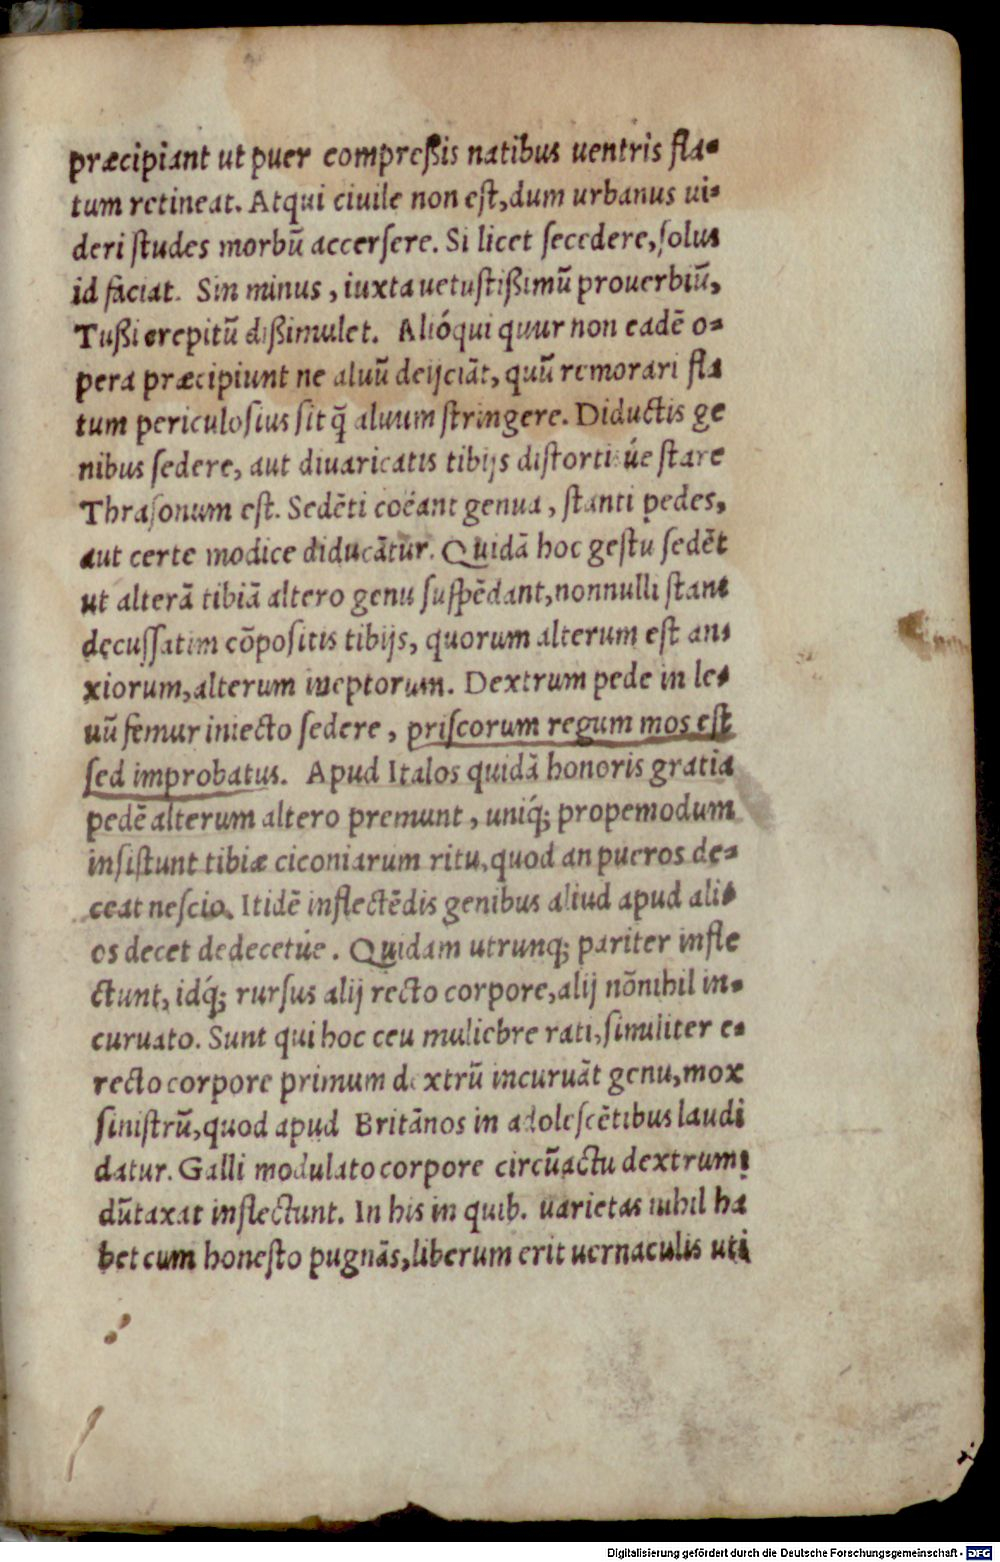 præcipiant ut puer compreßis natibus uentris fla-
tum retineat. Atqui ciuile non est, dum urbanus ui-
deri studes morbū accersere. Si licet secedere, solus
id faciat. Sin minus, iuxta uetustißimū prouerbiū,
Tußi crepitū dißimulet. Alióqui quur non eadē o-
pera præcipiunt ne aluū deijciāt, quū remorari fla
tum periculosius sit q̄ aluum stringere. Diductis ge
nibus sedere, aut diuaricatis tibijs distortisúe stare
Thrasonum est. Sedēti coëant genua, stanti pedes,
aut certe modice diducātur. Quidā hoc gestu sedēt
ut alterā tibiā altero genu suspēdant, nonnulli stant
decussatim cōpositis tibijs, quorum alterum est an-
xiorum, alterum ineptorum. Dextrum pede in le-
uū femur iniecto sedere, priscorum regum mos est
sed improbatus. Apud Italos quidā honoris gratia
pedē alterum altero premunt, uniq́; propemodum
insistunt tibiæ ciconiarum ritu, quod an pueros de-
ceat nescio. Itidē inflectēdis genibus aliud apud ali-
os decet dedecetúe. Quidam utrunq; pariter infle
ctunt, idq́; rursus alij recto corpore, alij nōnihil in-
curuato. Sunt qui hoc ceu muliebre rati, similiter e-
recto corpore primum dextrū incuruāt genu, mox
sinistrū, quod apud Britānos in adolescētibus laudi
datur. Galli modulato corpore circūactu dextrum
dūtaxat inflectunt. In his in quib. uarietas nihil ha
bet cum honesto pugnās, liberum erit uernaculis uti
Digitalisierung gefördert durch die Deutsche Forschungsgemeinschaft - DFG